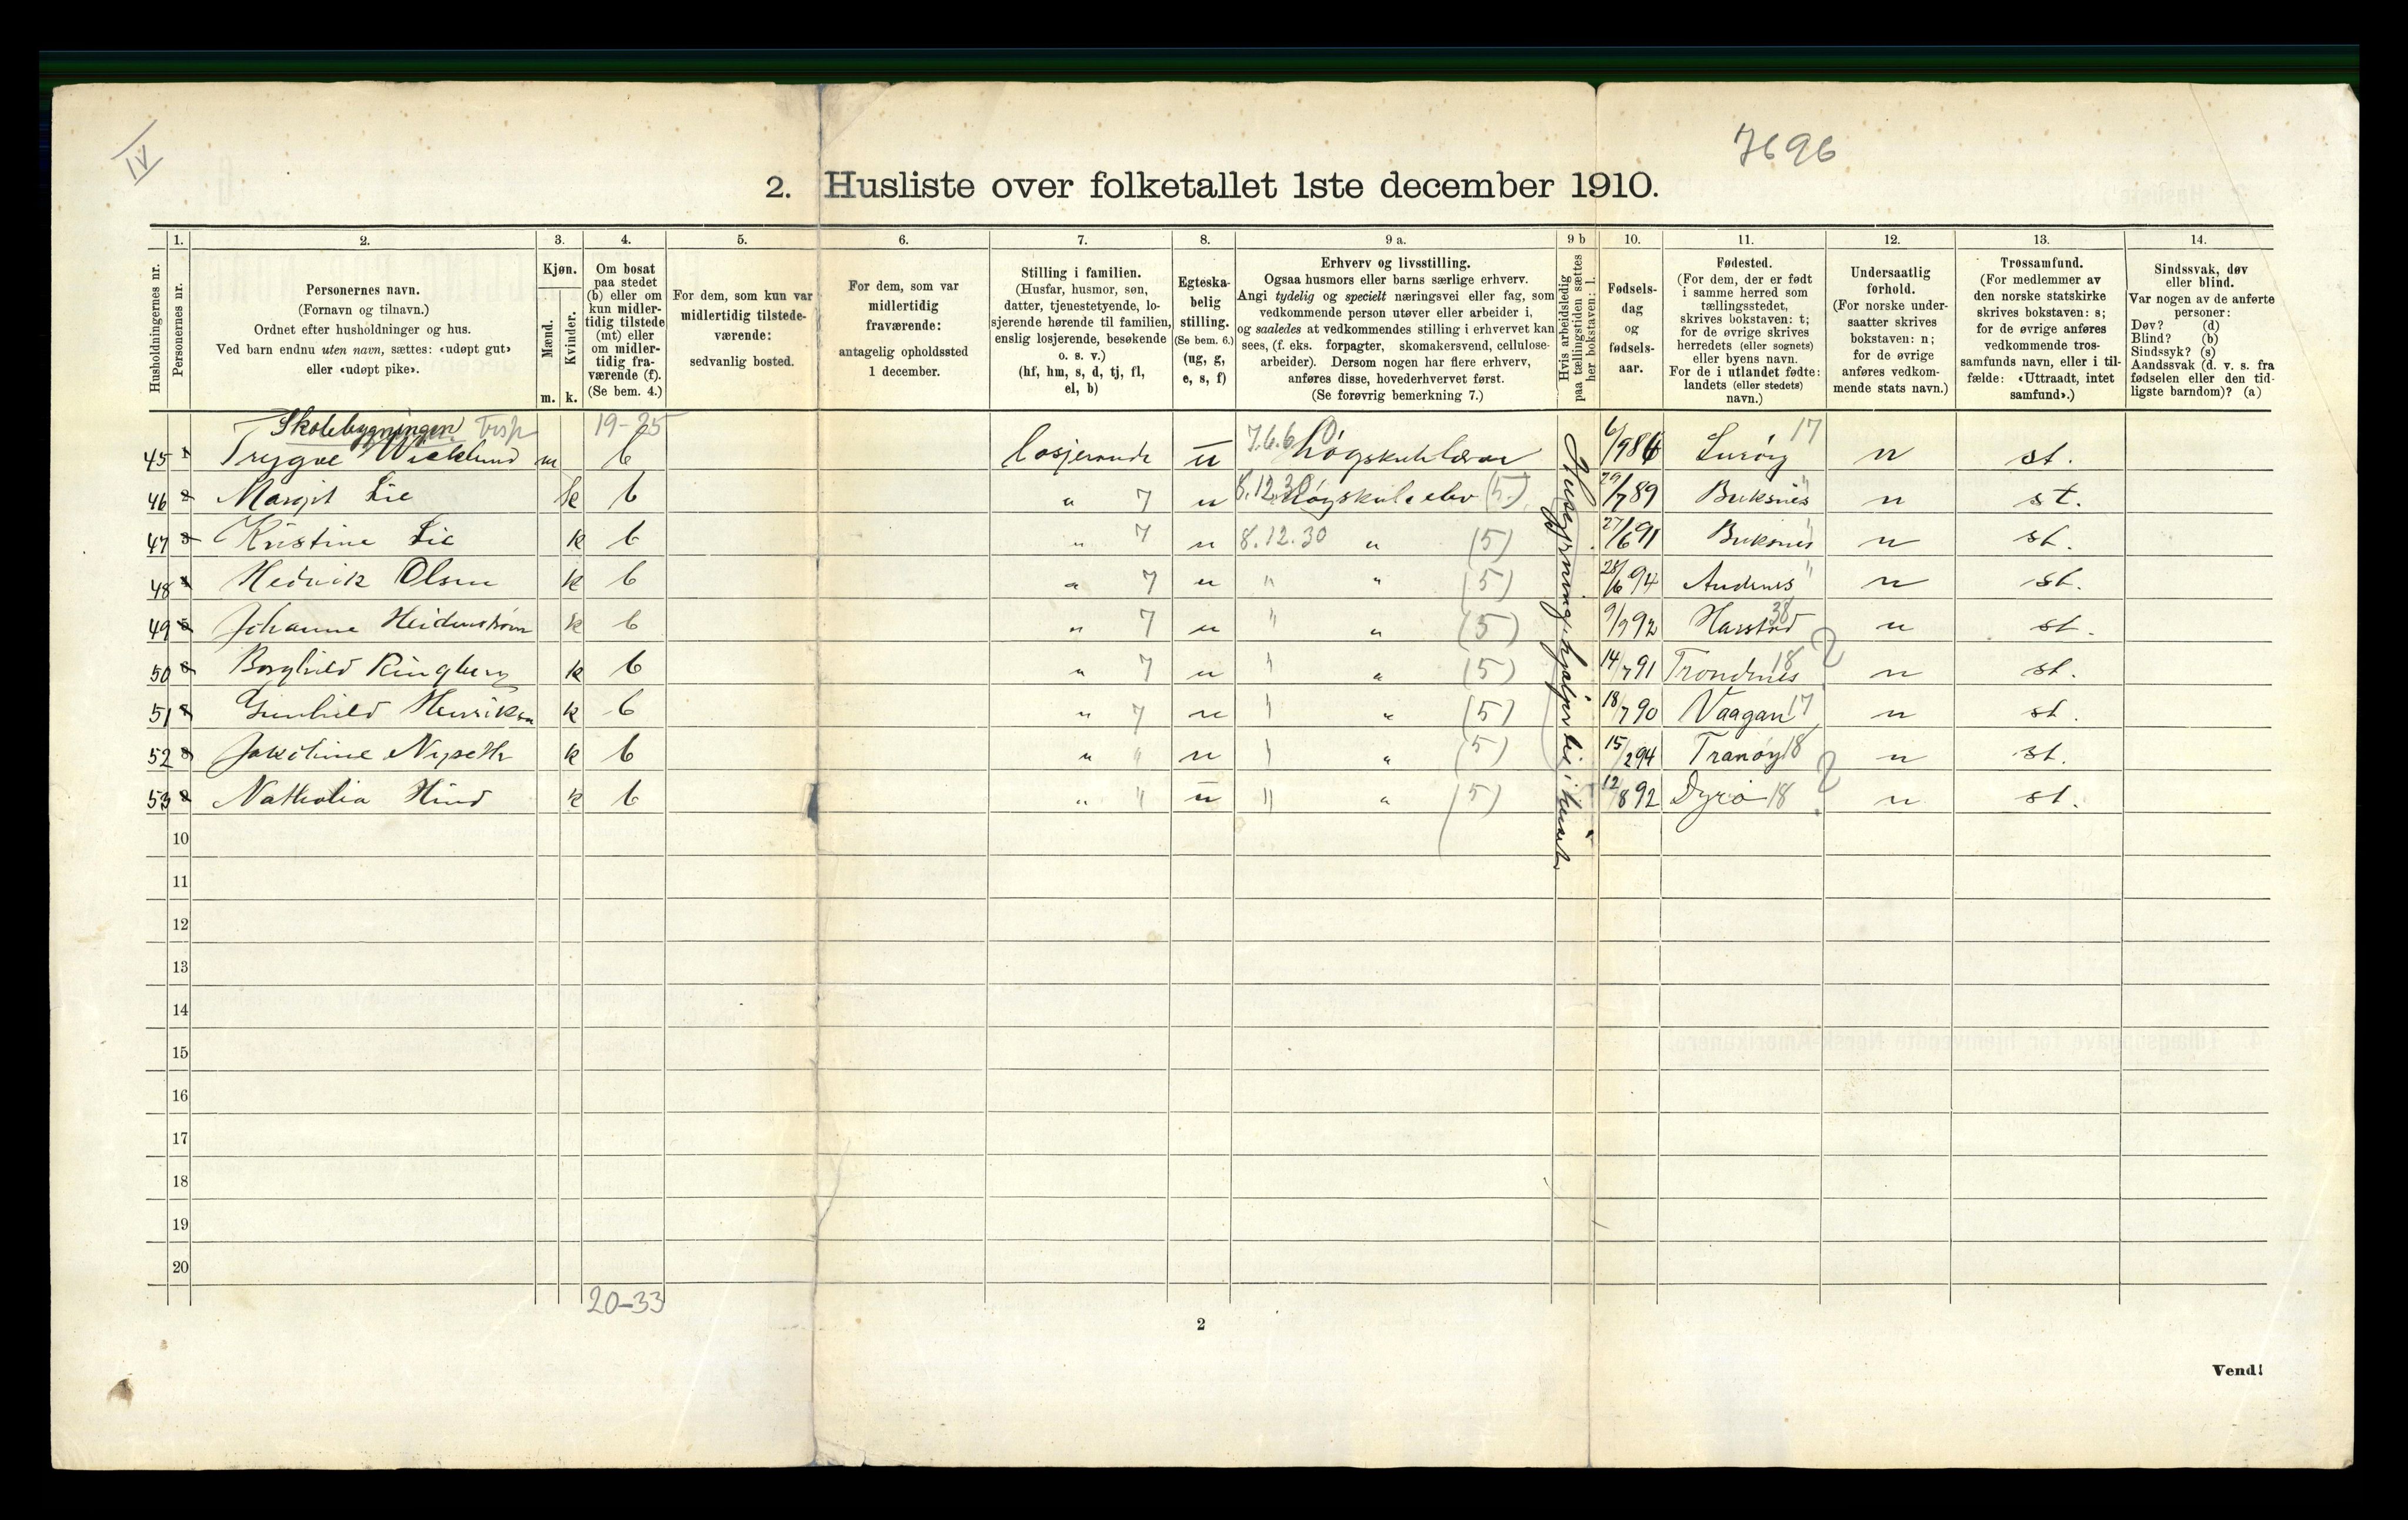 IV
7696
2. Husliste over folketallet 1ste december 1910.
Husholdningernes nr.
1. Personernes nr.
2. Personernes navn. (Fornavn og tilnavn.) Ordnet efter husholdninger og hus. Ved barn endnu uten navn, sættes: «udøpt gut» eller «udøpt pike».
3. Kjøn. Mænd. m. Kvinder. k.
4. Om bosat paa stedet (b) eller om kun midlertidig tilstede (mt) eller om midlertidig fraværende (f). (Se bem. 4.)
5. For dem, som kun var midlertidig tilstedeværende: sedvanlig bosted.
6. For dem, som var midlertidig fraværende: antagelig opholdssted 1 december.
7. Stilling i familien. (Husfar, husmor, søn, datter, tjenestetyende, losjerende hørende til familien, enslig losjerende, besøkende o. s. v.) (hf, hm, s, d, tj, fl, el, b)
8. Egteskabelig stilling. (Se bem. 6.) (ug, g, e, s, f)
9 a. Erhverv og livsstilling. Ogsaa husmors eller barns særlige erhverv. Angi tydelig og specielt næringsvei eller fag, som vedkommende person utøver eller arbeider i, og saaledes at vedkommendes stilling i erhvervet kan sees, (f. eks. forpagter, skomakersvend, cellulosearbeider). Dersom nogen har flere erhverv, anføres disse, hovederhvervet først. (Se forøvrig bemerkning 7.)
9 b Hvis arbeidsledig paa tællingstiden sættes her bokstaven: l.
10. Fødselsdag og fødselsaar.
11. Fødested. (For dem, der er født i samme herred som tællingsstedet, skrives bokstaven: t; for de øvrige skrives herredets (eller sognets) eller byens navn. For de i utlandet fødte: landets (eller stedets) navn.)
12. Undersaatlig forhold. (For norske undersaatter skrives bokstaven: n; for de øvrige anføres vedkommende stats navn.)
13. Trossamfund. (For medlemmer av den norske statskirke skrives bokstaven: s; for de øvrige anføres vedkommende trossamfunds navn, eller i tilfælde: «Uttraadt, intet samfund».)
14. Sindssvak, døv eller blind. Var nogen av de anførte personer: Døv? (d) Blind? (b) Sindssyk? (s) Aandssvak (d. v. s. fra fødselen eller den tidligste barndom)? (a)
Skolebygningen 19-25
45 1 Trygve Wicklund m b losjerande u 7.6.6 høgskulelærar 6/9 86 Lurøy 17 n st.
46 2 Margit Lie k b " 7 u 8.12.30 høgskuleelev (5) 29/7 89 Buksnes " n st.
47 3 Kristine Lie k b " 7 u 8.12.30 " (5) 27/6 91 Buksnes " n st.
48 4 Hedvik Olsen k b " 7 u " " (5) 28/6 94 Andenes " n st.
49 5 Johanne Heidenstrøm k b " 7 u " " (5) 9/9 92 Harstad 38 n st.
50 6 Borghild Ringberg k b " 7 u " " (5) 14/7 91 Trondenes 18 n st.
51 7 Gunhild Henriksen k b " 7 u " " (5) 18/7 90 Vaagan 17 n st.
52 8 Jakobine Nypeth k b " " u " " (5) 15/2 94 Tranøy 18 n st.
53 9 Nathalia Hind k b " " u " " (5) 12/8 92 Dyrø 18 n st.
10
11
12
13
14
15
16
17
18
19
20
20-33
2
Vend!